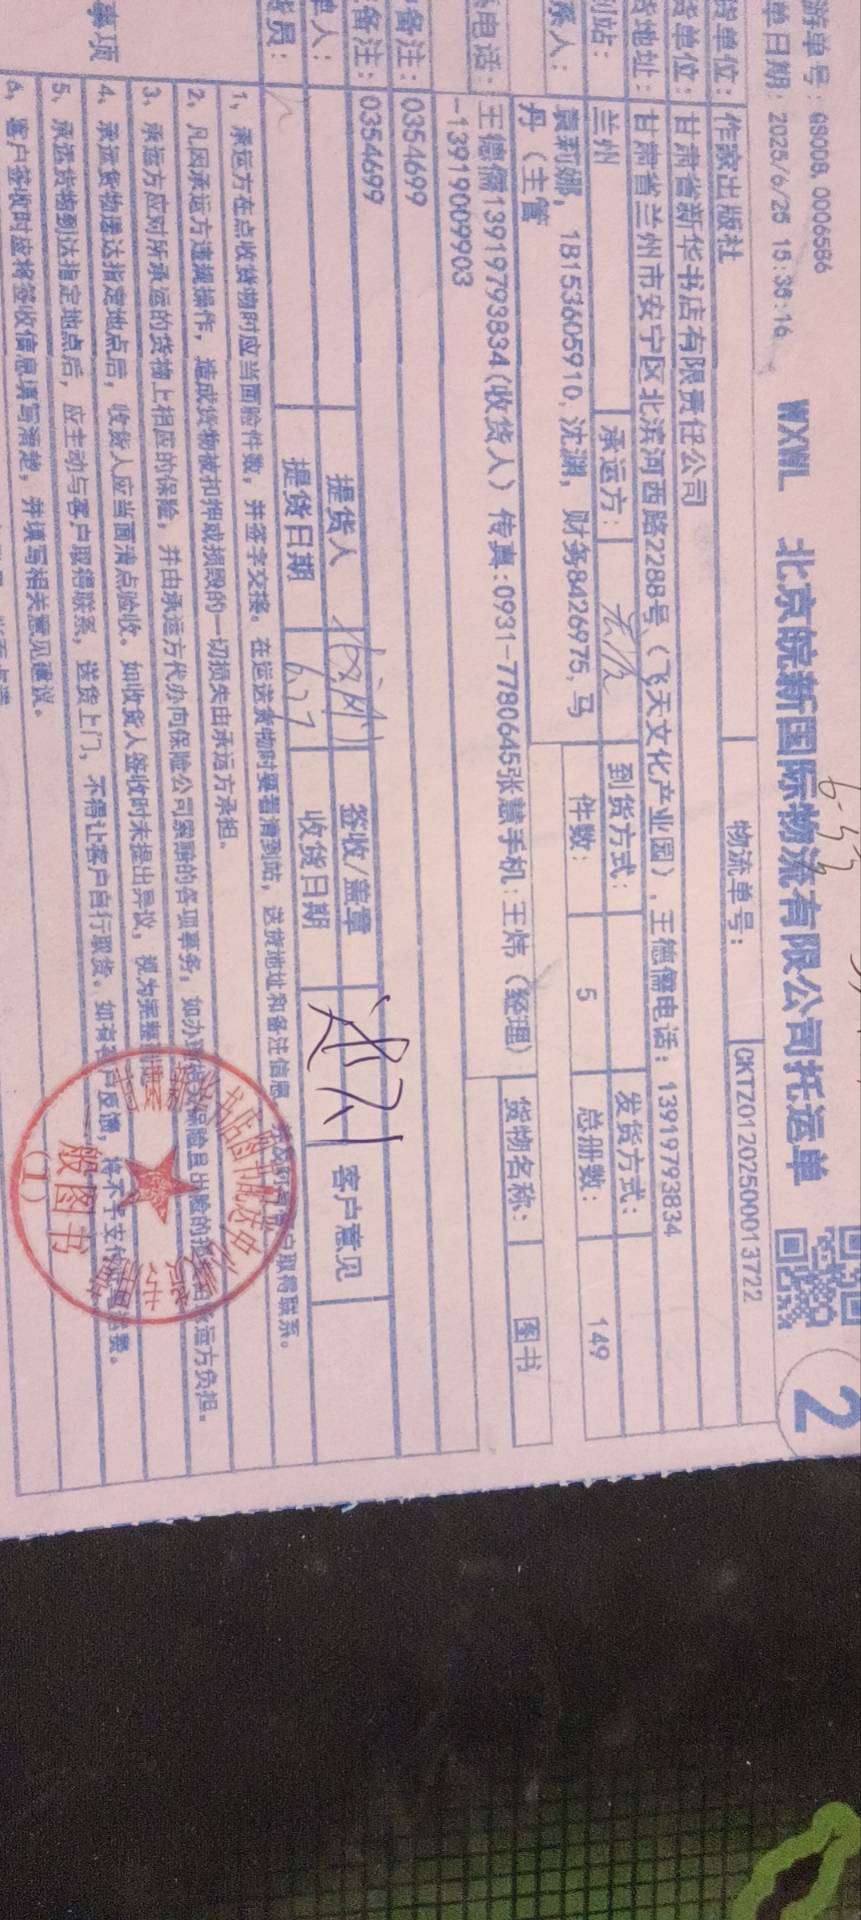 游单号：GS008, 0006586
单日期：2025/6/25 15:38:16
WXWL 北京皖新国际物流有限公司托运单
2
物流单号：CKTZ0120250013722
单位：作家出版社
货单位：甘肃省新华书店有限责任公司
货地址：甘肃省兰州市安宁区北滨河西路2288号（飞天文化产业园），王德儒电话：13919793834
到站：兰州 承运方： 到货方式： 发货方式：
系人：袁莉娜，18153605910,沈渊，财务8426975,马丹（主管 件数：5 总册数：149
系电话：王德儒13919793834(收货人）传真：0931-7780645张慧手机：王炜（经理）-13919009903 货物名称：图书
备注：0354699
备注：0354699
单人： 提货人 签收/盖章 客户意见
货员： 提货日期 6.27 收货日期
事项
1、承运方在点收货物时应当面验件数，并签字交接。在运送货物时要看清到站，送货地址和备注信息，
户取得联系。
2、凡因承运方违规操作，造成货物被扣押或损毁的一切损失由承运方承担。
3、承运方应对所承运的货物上相应的保险，并由承运方代办向保险公司索赔的各项事务，如办
保险且出险的
承运方负担。
4、承运货物送达指定地点后，收货人应当面清点验收。如收货人签收时未提出异议，视为完整
5、承运货物到达指定地点后，应主动与客户取得联系，送货上门，不得让客户自行取货。如有客户反馈，将不予支付
费。
6、客户签收时应将签收信息填写清楚，并填写相关意见建议。
一般图书
（1）